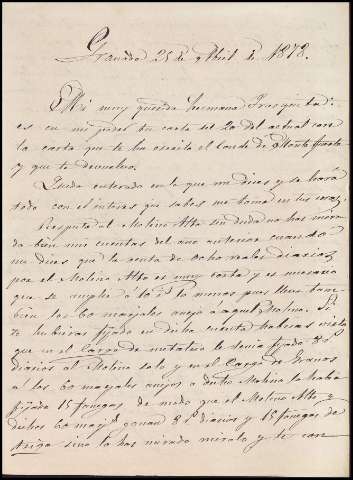 Granada 25 de Abril de 1878.
Mi muy querida hermana
es en mi poder tu carta del 20 del actual con
la carta que te ha escrito el Conde de Monte
y que te devuelvo.
Queda enterado en lo que me dices y se hará
todo con el interes que sabes me tomo en tus cosas.
Respecto al Molino Alto sin duda no has mira-
do bien mis cuentas del año anterior cuando
me dices que la renta de ocho reales diarios
por el Molino Alto es muy corta y es necesario
que se amplie á 10 r.s lo menos pues lleva tam-
bien los 60 marjales anejo a aquel Molino. Si
te hubieras fijado en dicha cuenta habrias visto
que en el Cargo de metalico le tenia fijado 8 r.s
diarios al Molino solo y en el Cargo de Granos
á los 60 marjales anejos a dicho Molino le habia
fijado 15 fanegas de modo que el Molino Alto y
dichos 60 marj.s ganan 8 r.s diarios y 15 fanegas de
trigo sino lo has mirado miralo y te con